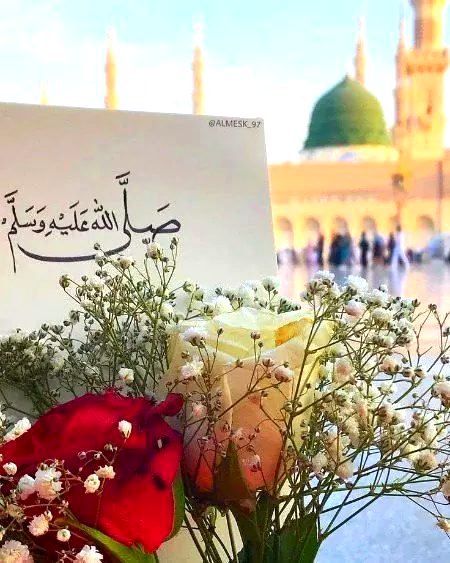 @ALMESK_97
صَلَّى اللهُ عَلَيْهِ وَسَلَّمَ